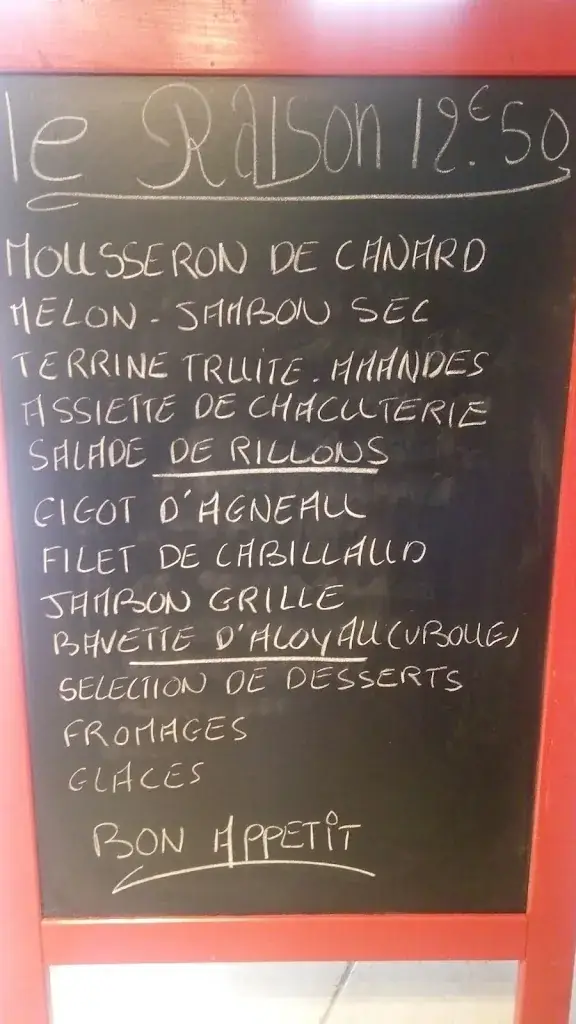 le Raison 12.€50
MOUSSERON DE CANARD
MELON - JAMBON SEC
TERRINE TRUITE. AMANDES
ASSIETTE DE CHACUTERIE
SALADE DE RILLONS
GIGOT D'AGNEAU
FILET DE CABILLAUD
JAMBON GRILLE
BAVETTE D'ALOYAU
SELECTION DE DESSERTS
FROMAGES
GLACES
BON APPETIT